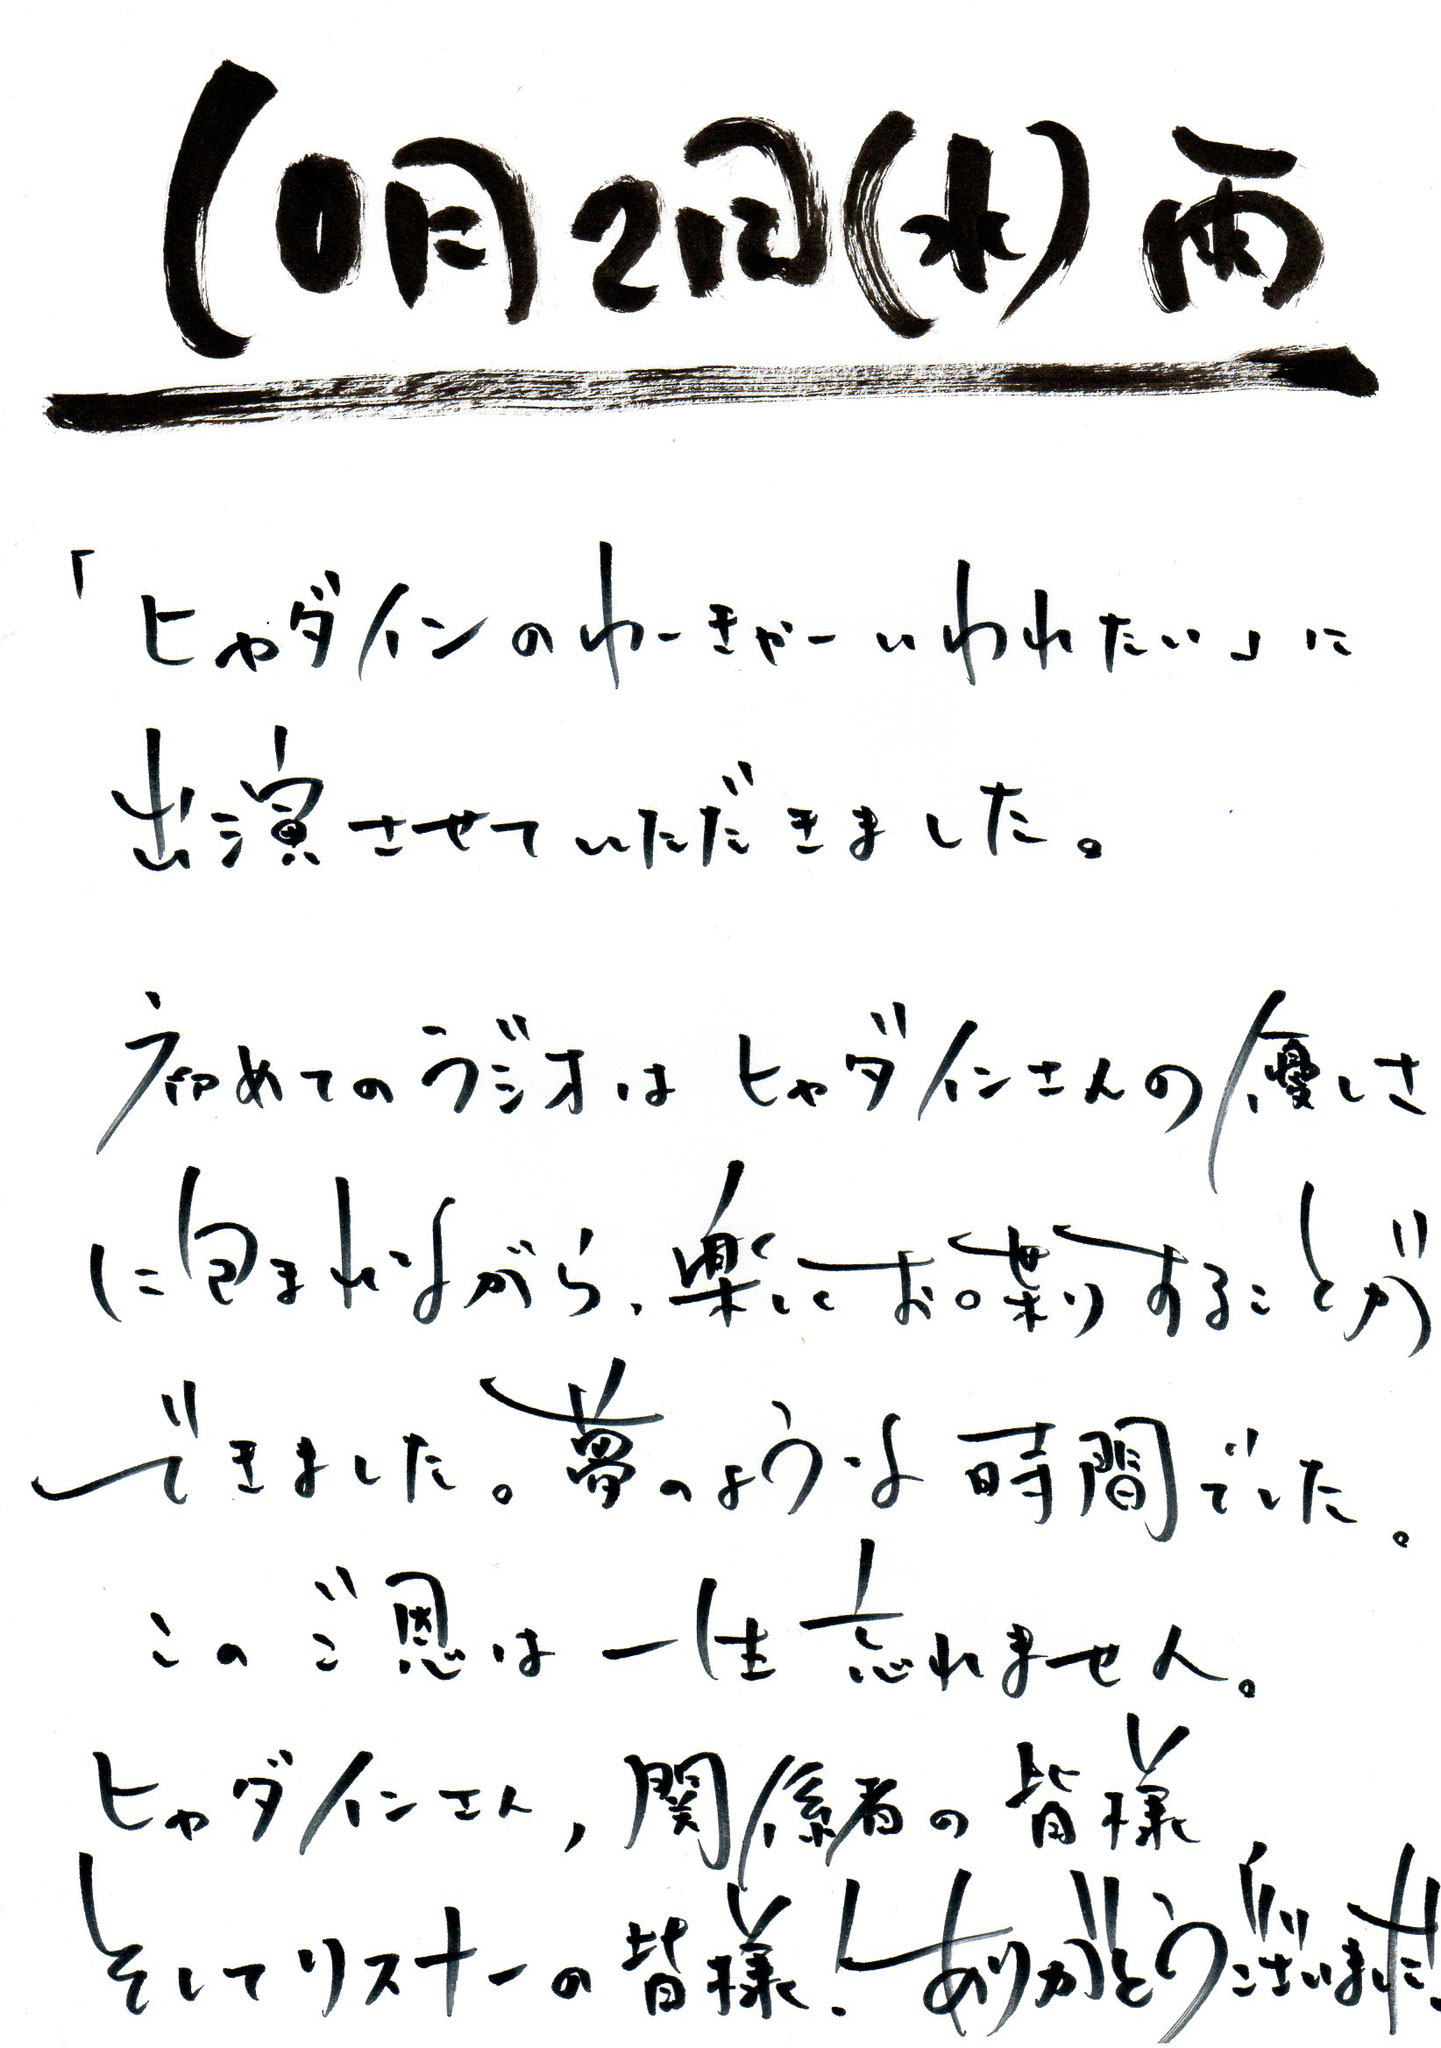 10月2日(水)雨
「ヒャダインのわーきゃーいわれたい」に
出演させていただきました。
初めてのラジオはヒャダインさんの優しさ
に包まれながら、楽しくお喋りすることが
できました。夢のような時間でした。
このご恩は一生忘れません。
ヒャダインさん,関係者の皆様
そしてリスナーの皆様!ありがとうございました!